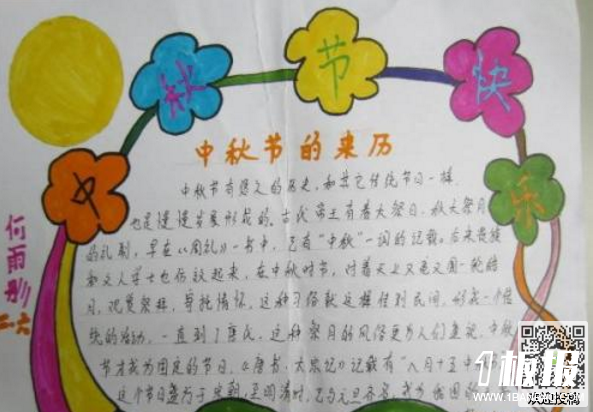 中秋节快乐
中秋节的来历
中秋节有悠久的历史,和其它传统节日一样,
也是慢慢发展形成的。古代帝王有春天祭日,秋天祭月
的礼制,早在《周礼》一书中,已有“中秋”一词的记载。后来贵族
和文人学士也仿效起来,在中秋时节,对着天上又亮又圆一轮皓
月,观赏祭拜,寄托情怀,这种习俗就这样传到民间,形成一个传
统的活动,一直到了唐代,这种祭月的风俗更为人们重视,中秋
节才成为固定的节日,《唐书·太宗记》记载有“八月十五中
这个节日盛行于宋朝,至明清时,已与元旦齐名,成为我国的
何雨彤
二.六
1板报